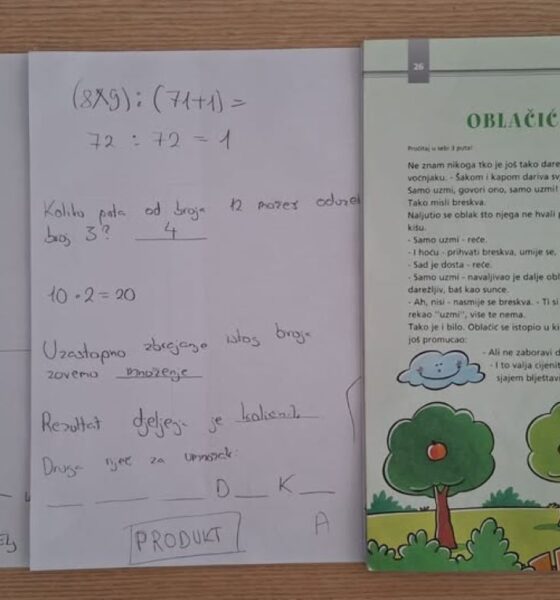 (8x9) : (71+1) =
72 : 72 = 1
Koliko puta od broja 12 možeš oduzeti
broj 3? 4
10 · 2 = 20
Uzastopno zbrajanje istog broja
zovemo množenje
Rezultat djeljenja je količnik
Druga riječ za umnožak:
D K
A
PRODUKT
26
OBLAČIĆ
Pročitaj u sebi 3 puta!
Ne znam nikoga tko je još tako dare
voćnjaku. - Šakom i kapom dariva sv
Samo uzmi, govori ono, samo uzmi!
Tako misli breskva.
Naljutio se oblak što njega ne hvali p
kišu.
- Samo uzmi - reče.
- I hoću - prihvati breskva, umije se,
- Sad je dosta - reče.
- Samo uzmi - navaljivao je dalje obl
darežljiv, baš kao sunce.
- Ah, nisi - nasmije se breskva. - Ti si
rekao "uzmi", više te nema.
Tako je i bilo. Oblačić se istopio u ki
još promucao:
- Ali ne zaboravi d
- I to valja cijenit
sjajem blještavi